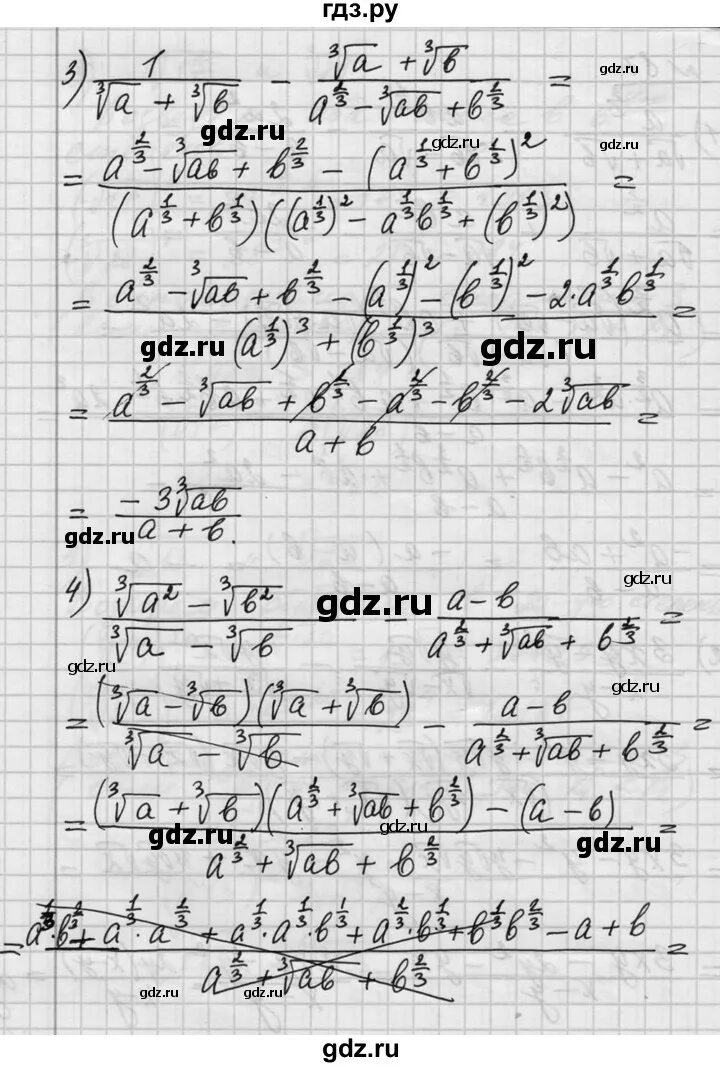 гдз.ру
3) 1/(∛a + ∛b) − (∛a + ∛b)/(a^(2/3) − ∛ab + b^(2/3)) =
gdz.ru
gdz.ru
gdz.ru
= (a^(2/3) − ∛ab + b^(2/3) − (a^(1/3) + b^(1/3))^2)/((a^(1/3) + b^(1/3))((a^(1/3))^2 − a^(1/3)b^(1/3) + (b^(1/3))^2)) =
= (a^(2/3) − ∛ab + b^(2/3) − (a^(1/3))^2 − (b^(1/3))^2 − 2·a^(1/3)b^(1/3))/((a^(1/3))^3 + (b^(1/3))^3) =
gdz.ru
gdz.ru
= (a^(2/3) − ∛ab + b^(2/3) − a^(2/3) − b^(2/3) − 2∛ab)/(a + b) =
= (−3∛ab)/(a + b).
gdz.ru
gdz.ru
4) (∛a² − ∛b²)/(∛a − ∛b) − (a − b)/(a^(2/3) + ∛ab + b^(2/3)) =
gdz.ru
gdz.ru
gdz.ru
= ((∛a − ∛b)(∛a + ∛b))/(∛a − ∛b) − (a − b)/(a^(2/3) + ∛ab + b^(2/3)) =
= ((∛a + ∛b)(a^(2/3) + ∛ab + b^(2/3)) − (a − b))/(a^(2/3) + ∛ab + b^(2/3)) =
gdz.ru
gdz.ru
gdz.ru
= (a^(1/3)·b^(2/3) + a^(1/3)·a^(2/3) + a^(1/3)·a^(1/3)·b^(1/3) + a^(2/3)·b^(1/3) + b^(1/3)b^(2/3) − a + b)/(a^(2/3) + ∛ab + b^(2/3)) =
gdz.ru
gdz.ru
gdz.ru